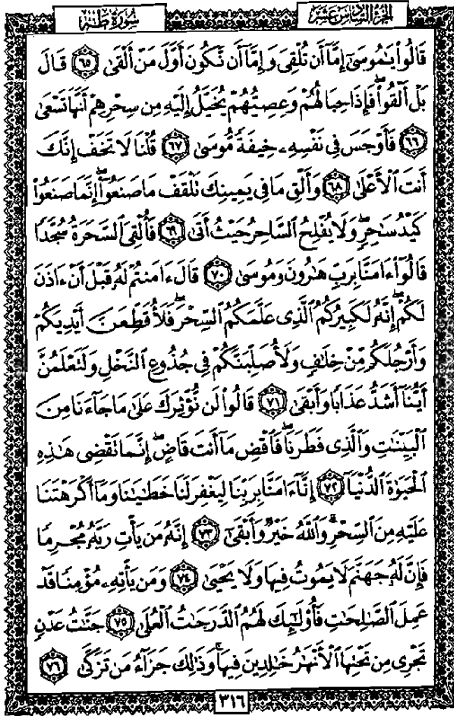 الجزء السادس عشر
سورة طه
قَالُوا۟ يَٰمُوسَىٰٓ إِمَّآ أَن تُلْقِىَ وَإِمَّآ أَن نَّكُونَ أَوَّلَ مَنْ أَلْقَىٰ ٦٥ قَالَ
بَلْ أَلْقُوا۟ۖ فَإِذَا حِبَالُهُمْ وَعِصِيُّهُمْ يُخَيَّلُ إِلَيْهِ مِن سِحْرِهِمْ أَنَّهَا تَسْعَىٰ
٦٦ فَأَوْجَسَ فِى نَفْسِهِۦ خِيفَةً مُّوسَىٰ ٦٧ قُلْنَا لَا تَخَفْ إِنَّكَ
أَنتَ ٱلْأَعْلَىٰ ٦٨ وَأَلْقِ مَا فِى يَمِينِكَ تَلْقَفْ مَا صَنَعُوٓا۟ۖ إِنَّمَا صَنَعُوا۟
كَيْدُ سَٰحِرٍۖ وَلَا يُفْلِحُ ٱلسَّاحِرُ حَيْثُ أَتَىٰ ٦٩ فَأُلْقِىَ ٱلسَّحَرَةُ سُجَّدًا
قَالُوٓا۟ ءَامَنَّا بِرَبِّ هَٰرُونَ وَمُوسَىٰ ٧٠ قَالَ ءَامَنتُمْ لَهُۥ قَبْلَ أَنْ ءَاذَنَ
لَكُمْۖ إِنَّهُۥ لَكَبِيرُكُمُ ٱلَّذِى عَلَّمَكُمُ ٱلسِّحْرَۖ فَلَأُقَطِّعَنَّ أَيْدِيَكُمْ
وَأَرْجُلَكُم مِّنْ خِلَٰفٍ وَلَأُصَلِّبَنَّكُمْ فِى جُذُوعِ ٱلنَّخْلِ وَلَتَعْلَمُنَّ
أَيُّنَآ أَشَدُّ عَذَابًا وَأَبْقَىٰ ٧١ قَالُوا۟ لَن نُّؤْثِرَكَ عَلَىٰ مَا جَآءَنَا مِنَ
ٱلْبَيِّنَٰتِ وَٱلَّذِى فَطَرَنَاۖ فَٱقْضِ مَآ أَنتَ قَاضٍۖ إِنَّمَا تَقْضِى هَٰذِهِ
ٱلْحَيَوٰةَ ٱلدُّنْيَآ ٧٢ إِنَّآ ءَامَنَّا بِرَبِّنَا لِيَغْفِرَ لَنَا خَطَٰيَٰنَا وَمَآ أَكْرَهْتَنَا
عَلَيْهِ مِنَ ٱلسِّحْرِۗ وَٱللَّهُ خَيْرٌ وَأَبْقَىٰٓ ٧٣ إِنَّهُۥ مَن يَأْتِ رَبَّهُۥ مُجْرِمًا
فَإِنَّ لَهُۥ جَهَنَّمَ لَا يَمُوتُ فِيهَا وَلَا يَحْيَىٰ ٧٤ وَمَن يَأْتِهِۦ مُؤْمِنًا قَدْ
عَمِلَ ٱلصَّٰلِحَٰتِ فَأُو۟لَٰٓئِكَ لَهُمُ ٱلدَّرَجَٰتُ ٱلْعُلَىٰ ٧٥ جَنَّٰتُ عَدْنٍ
تَجْرِى مِن تَحْتِهَا ٱلْأَنْهَٰرُ خَٰلِدِينَ فِيهَاۚ وَذَٰلِكَ جَزَآءُ مَن تَزَكَّىٰ ٧٦
٣١٦